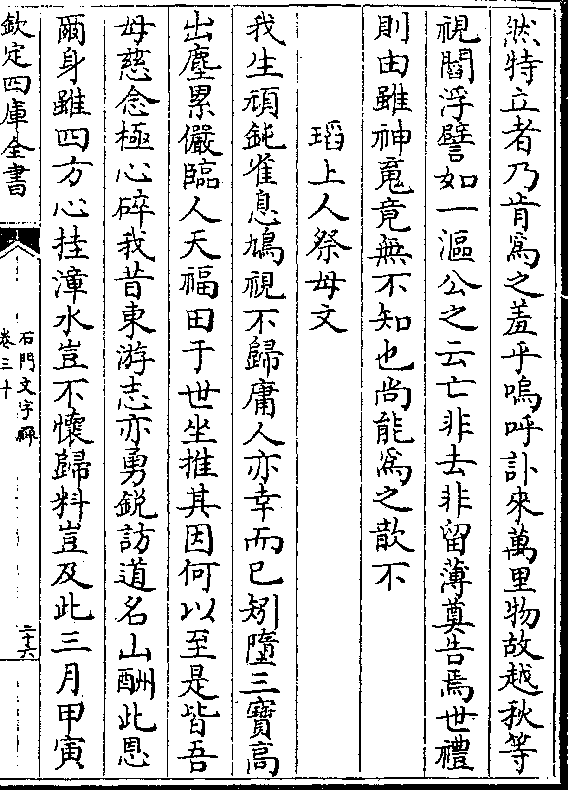 然特立者乃肯爲之羞乎嗚呼訃來萬里物故越秋等
視閻浮譬如一漚公之云亡非去非留薄奠告焉世禮
則由雖神䰟竟無不知也尚能爲之歆不
瑫上人祭母文
我生頑鈍雀息鳩視不歸庸人亦幸而已矧墮三寶高
出塵累儼臨人天福田于世坐推其因何以至是皆吾
母慈念極心碎我昔東游志亦勇銳訪道名山酬此恩
爾身雖四方心挂漳水豈不懷歸料豈及此三月甲寅
欽定四庫全書
石門文字禪
卷三十
二十六